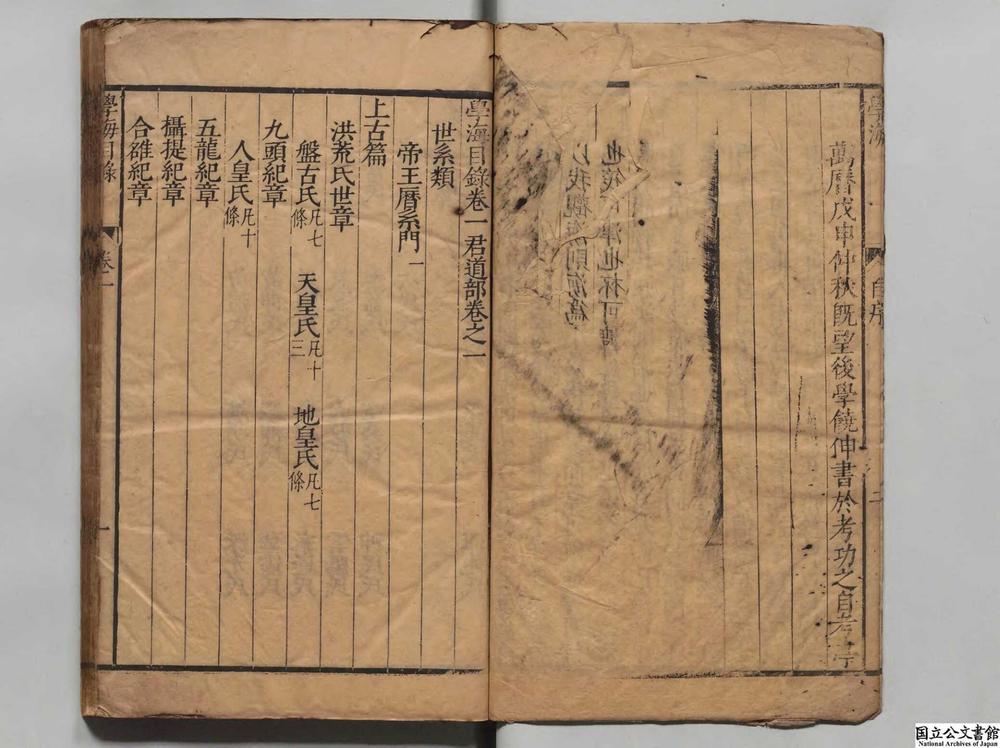 萬曆戊申仲秋既望後學饒伸書於考功之自考亭
自序
二
學海目錄卷一 君道部卷之一
世系類
帝王曆系門一
上古篇
洪荒氏世章
盤古氏凡七條 天皇氏凡十三 地皇氏凡七條
九頭紀章
人皇氏凡十條
五龍紀章
攝提紀章
合雒紀章
學海目錄
卷一
一
国立公文書館
National Archives of Japan